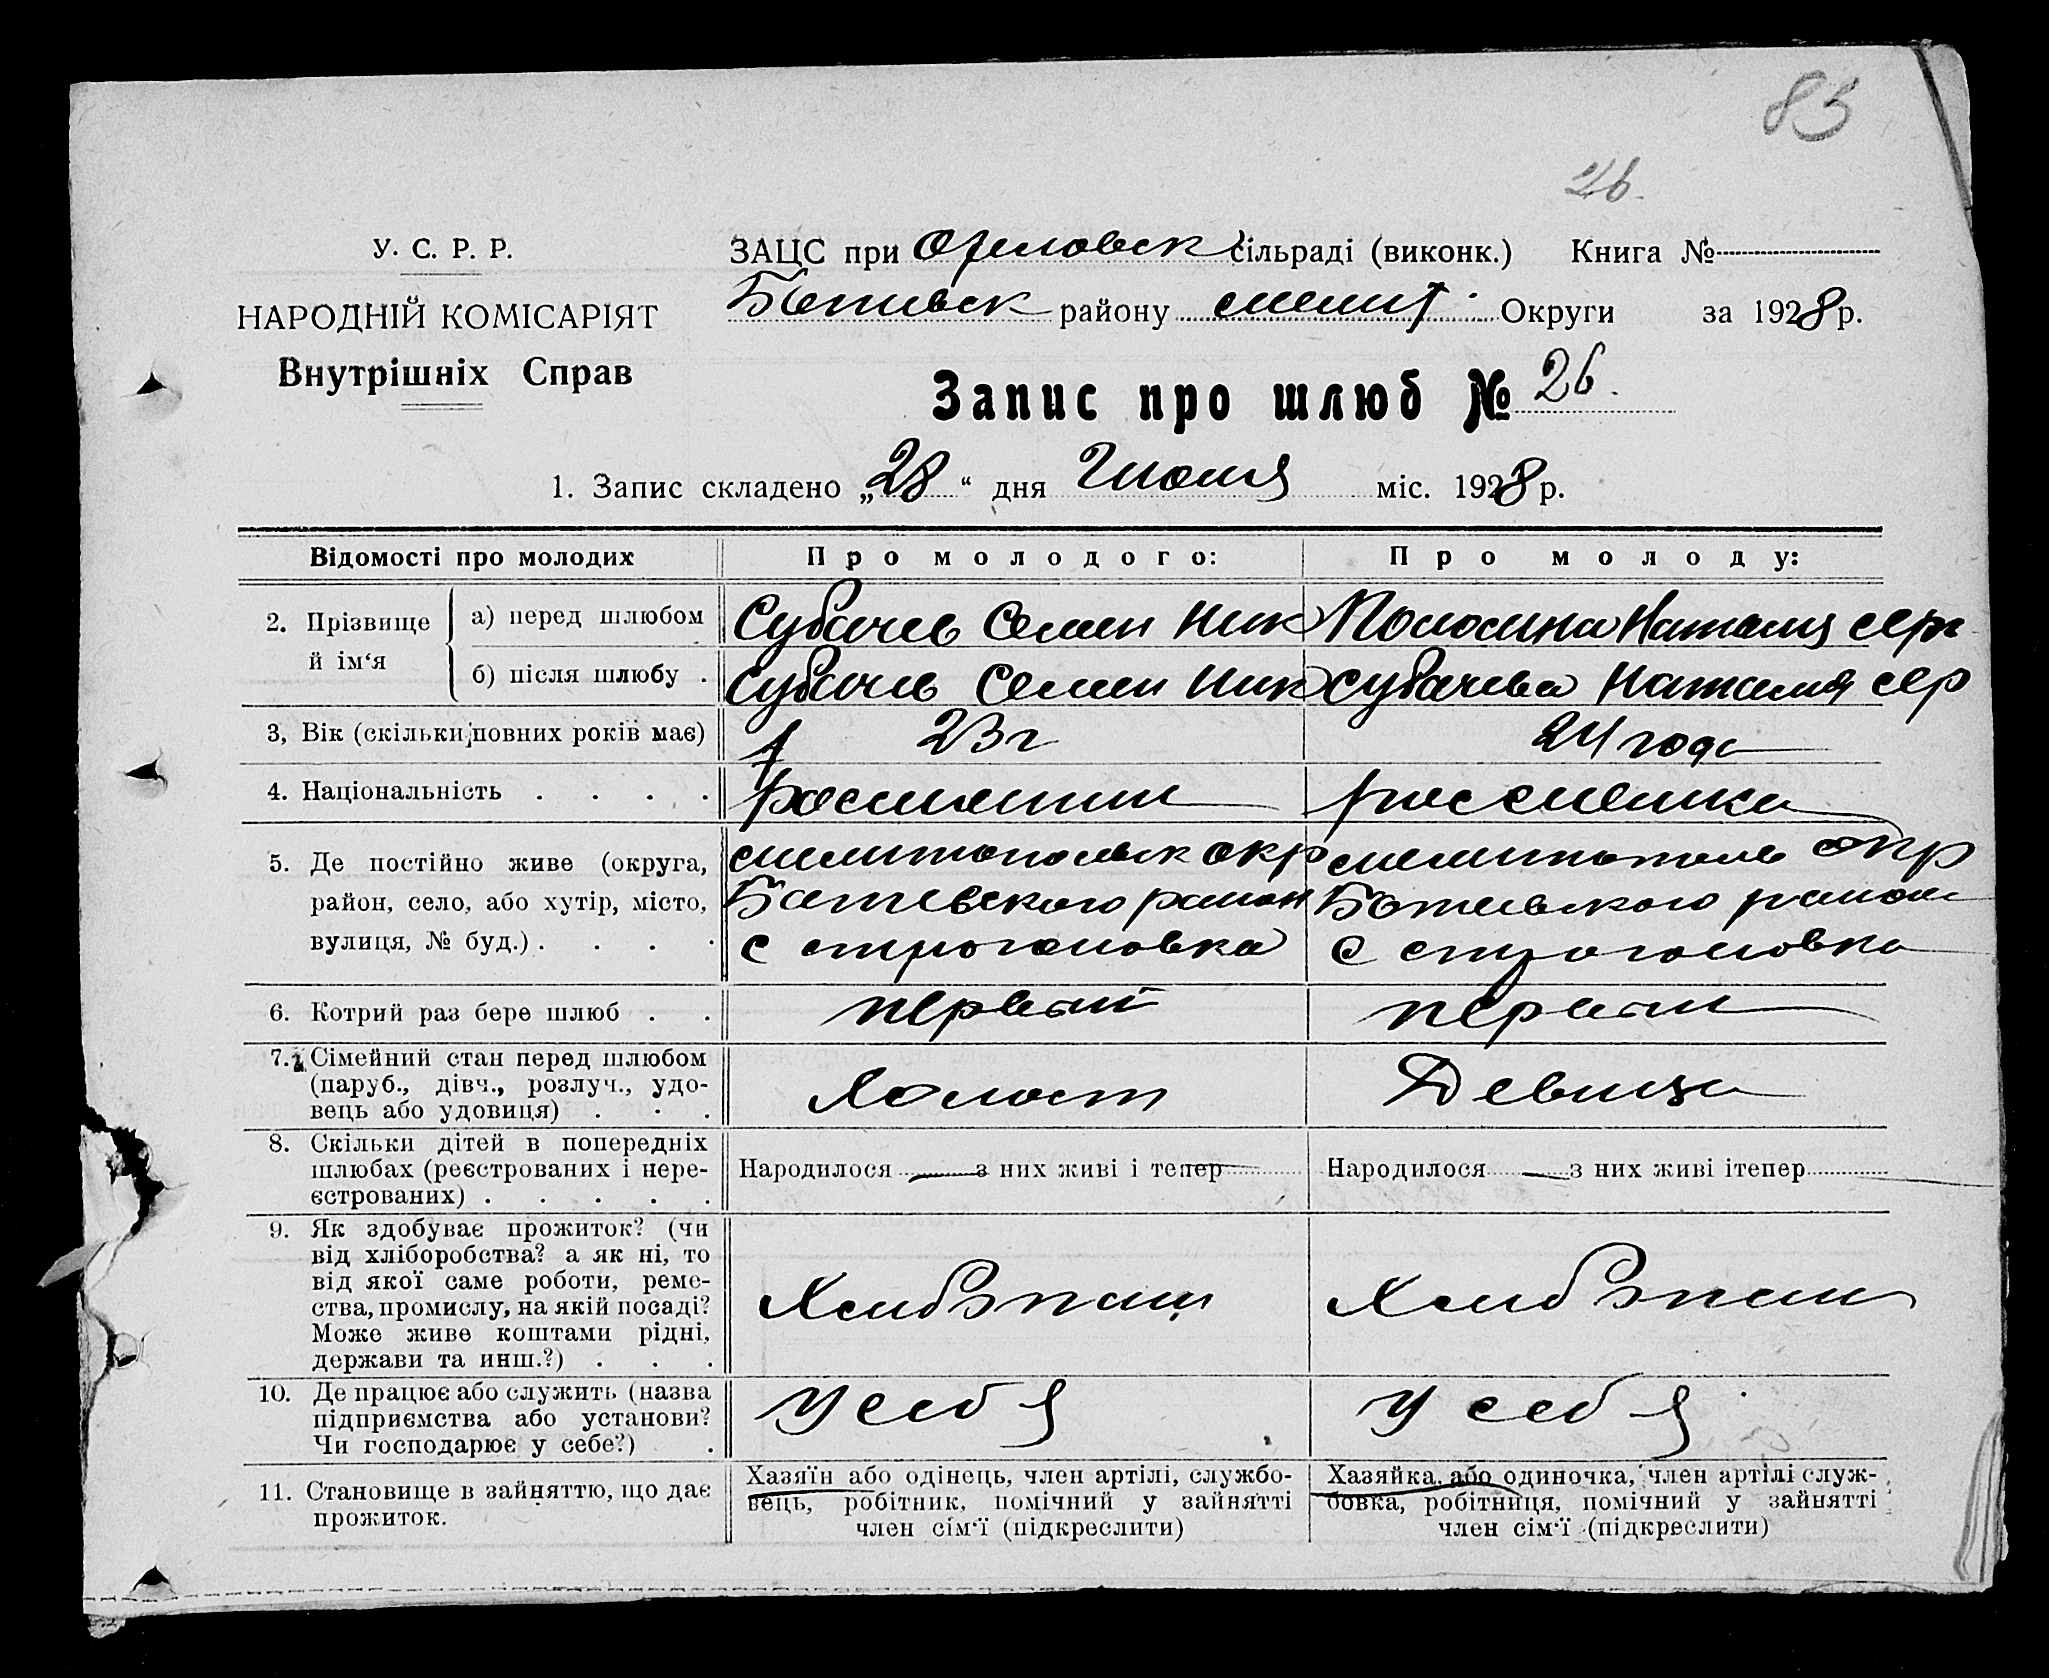 83
26.
У. С. Р. Р.
НАРОДНІЙ КОМІСАРІЯТ
Внутрішніх Справ
ЗАЦС при Орловск сільраді (виконк.) Книга №
Ботивск району мелит. Округи за 1928 р.
Запис про шлюб № 26.
1. Запис складено „28“ дня Июля міс. 1928 р.
Відомості про молодих
Про молодого:
Про молоду:
2. Прізвище й ім‘я
а) перед шлюбом
Субачев Семен Ник
Наталия Серг
б) після шлюбу .
Субачев Семен Ник
Субачева Наталия Сер
3, Вік (скільки повних років має)
23 г
24 года
4. Національність . . . .
россиянин
россиянка
5. Де постійно живе (округа,
район, село, або хутір, місто,
вулиця, № буд.) . . . .
мелитопольск окр
Ботевского район
с строгоновка
мелитополь окр
Ботивского район
с строгоновка
6. Котрий раз бере шлюб . .
первый
первый
7. Сімейний стан перед шлюбом
(паруб., дівч., розлуч., удо-
вець або удовиця) . . .
Холост
Девица
8. Скільки дітей в попередніх
шлюбах (реєстрованих і нере-
єстрованих) . . . . .
Народилося — з них живі і тепер —
Народилося — з них живі ітепер
9. Як здобуває прожиток? (чи
від хліборобства? а як ні, то
від якої саме роботи, реме-
ства, промислу, на якій посаді?
Може живе коштами рідні,
держави та инш.?) . . .
Хлебопаш
Хлебопаш
10. Де працює або служить (назва
підприємства або установи?
Чи господарює у себе?) .
У себя
У себя
11. Становище в зайняттю, що дає
прожиток.
Хазяїн або одінець, член артілі, службо-
вець, робітник, помічний у зайнятті
член сім‘ї (підкреслити)
Хазяйка, або одиночка, член артілі служ-
бовка, робітниця, помічний у зайнятті
член сім‘ї (підкреслити)